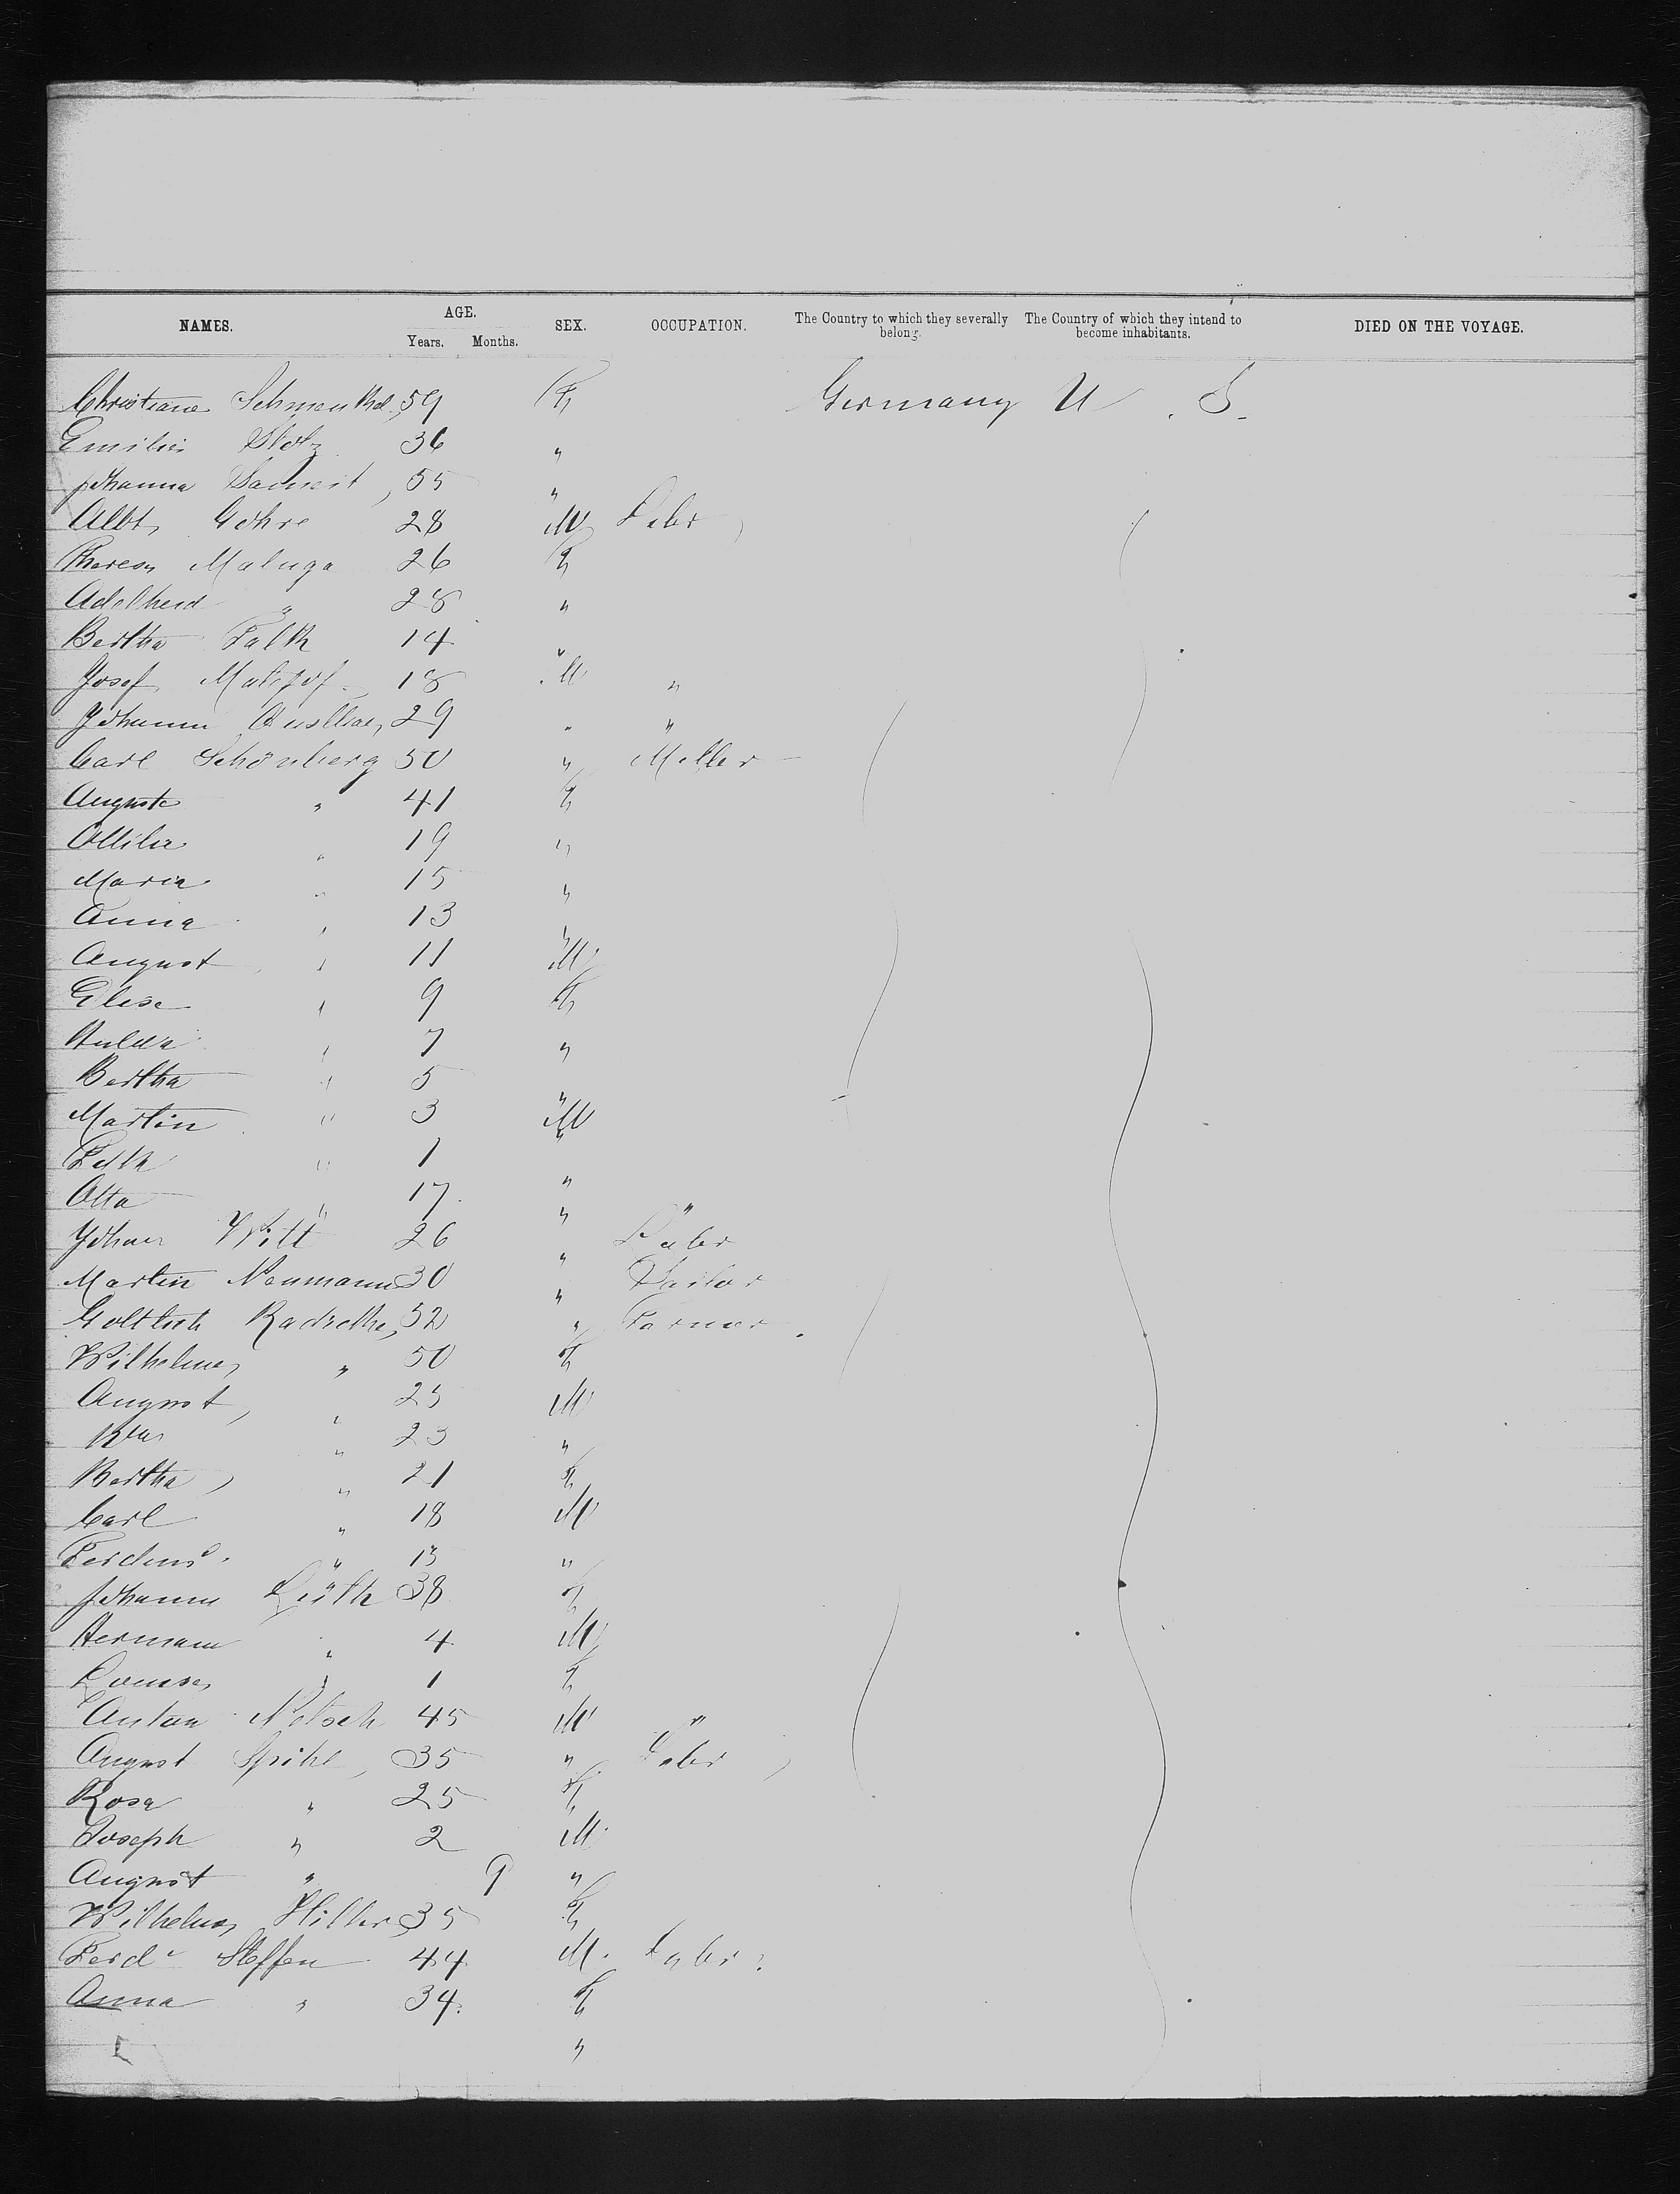 NAMES. AGE. SEX. OCCUPATION. The Country to which they severally belong. The Country of which they intend to become inhabitants. DIED ON THE VOYAGE.
Years. Months.
Christiane 59 F Germany U. S.
Emilie Slotz 36 "
Johanna 55 "
Albt, Göhre 28 M Labr,
Theresa Maluga 26 F
Adelheid " 28 "
Bertha Falk 14 "
Josef 18 M "
Johann 29 " "
Carl Schönberg 50 " Miller
Auguste " 41 F
Ottilie " 19 "
Maria " 15 "
Anna " 13 "
August " 11 M
Elise " 9 F
Hulda " 7 "
Bertha " 5 "
Martin " 3 M
" 1 "
Otto " 17 "
Johann Witt 26 " Labr
Martin Neumann 30 " Sailor
Gottlieb Radtdke, 52 " Farmer
Wilhelme, " 50 F
August, " 25 M
" 23 "
Bertha, " 21 F
Carl " 18 M
Ferdind. " 15 "
Johanna Lüth 38 F
Hermann " 4 M
Louise, " 1 F
Anton 45 M "
August Spihl, 35 " Labr,
Rosa " 25 F
Joseph " 2 M
August " 9 "
Wilhelme, Hiller, 35 F
Ferd Steffen 44 M. Labr.
Anna " 34. F
"